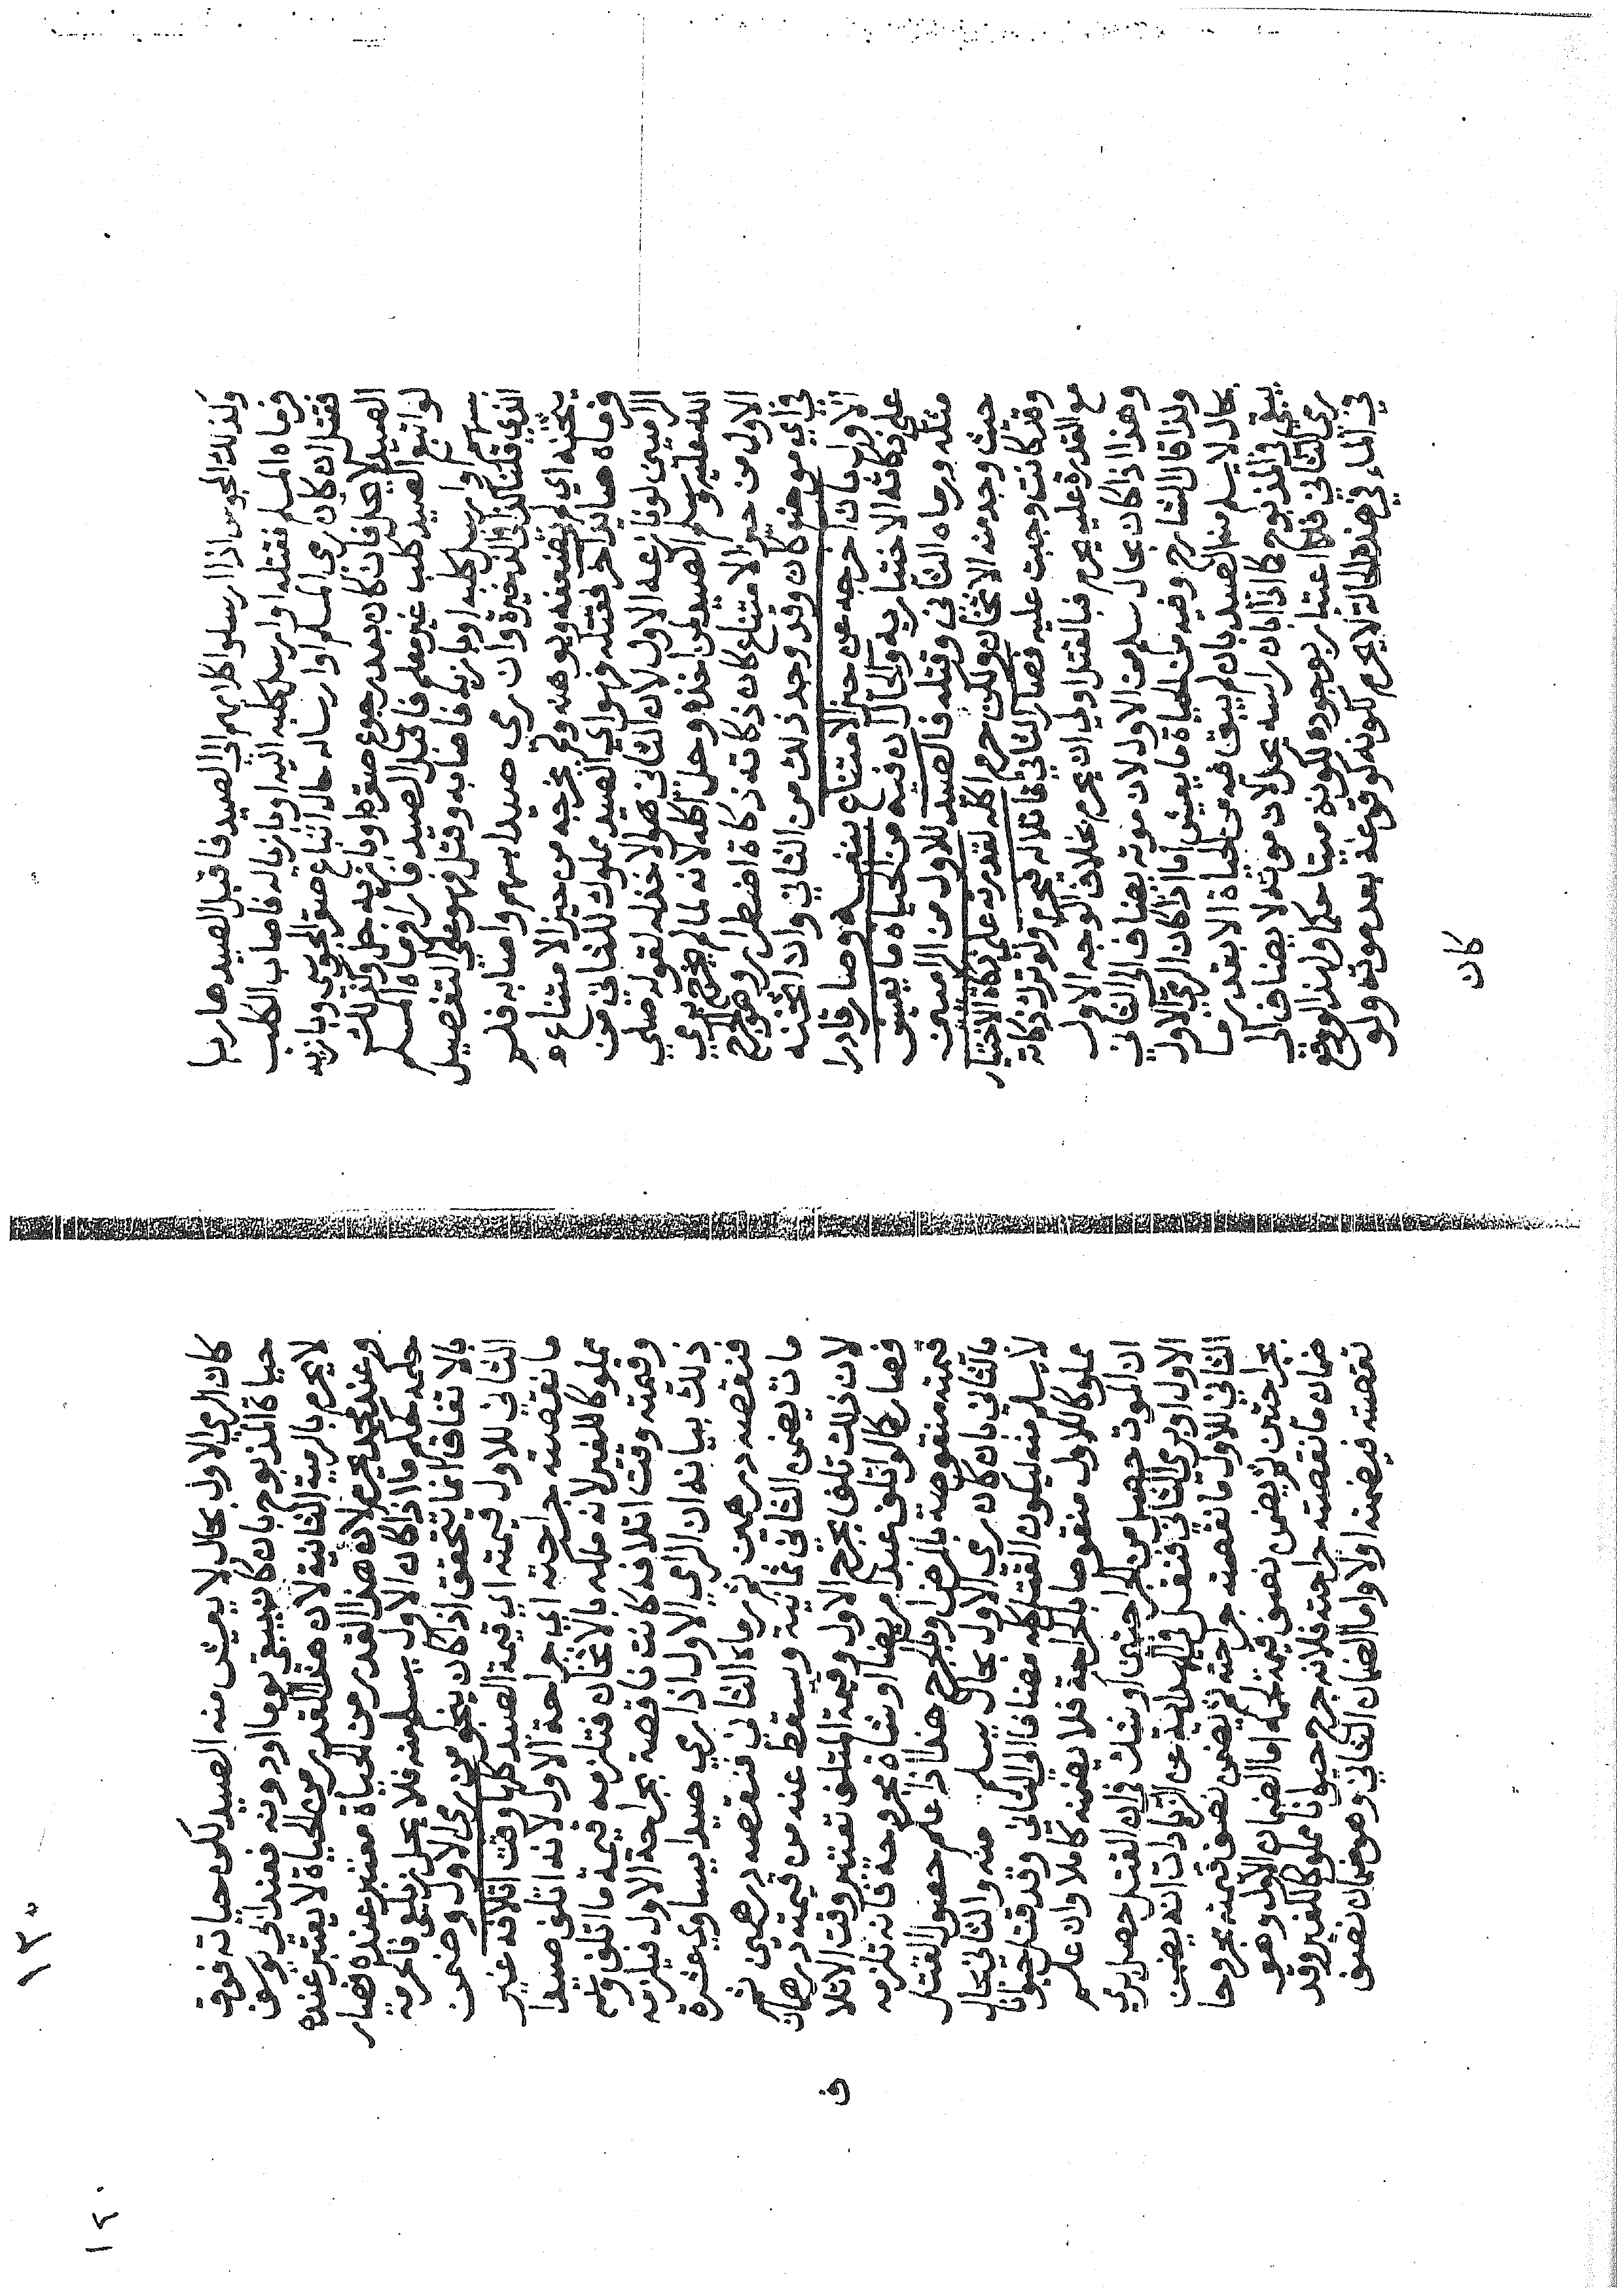 وكذلك المجوس اذا ارسلوا كلابهم الى الصيد فاقبل الصيد هاربا
فرماه المسلم فقتله او ارسل كلبه اليه او بازياله فاصاب الكلب
فقتل ان كان رمي المسلم او ارساله حال اتباع صقر المجوسي وبازيه
الصيد لا يحل فان كان بعد رجوع صقره او بازيه حل وكذلك
لو اتبع الصيد كلب غير معلم فاقبل الصيد فارا فرماه المسلم
بسهم او ارسل كلبه او بازيه فاصابه وقتل فهو على التفصيل
الذي قلنا كذا في الذخيرة وان رمى صيدا بسهم واصابه فلم
يثخنه اي لم يضعفه ويوهنه ولم يخرجه من حيز الامتناع و
فرماه صايد اخر فقتله فهو اي الصيد مملوك للثاني من
الراميين لو نازعه الاول لان الثاني هو الاخذ له لقوله صلى
الله عليه وسلم الصيد لمن اخذه وحل اكله لانه لما لم يخرج برمي
الاول من حيز الامتناع كان ذكاته ذكاة اضطرار وهو الجرح
في اي موضع كان وقد وجد ذلك من الثاني وان اثخنه
الاول بان اخرجه عن حيز الامتناع بنفسه وصار قادرا
على ذكاته الاختيارية والحال ان فيه من الحياه ما يعيش
مثله ورماه الثاني وقتله فالصيد للاول من الراميين
حيث وجد منه الاثخان ولكن حرم اكله لقدرته على ذكاة الاختيار
وقد كانت وجبت عليه فصار الثاني قاتلا له فيحرم ولو ترك ذكاته
مع القدرة عليه يحرم فبالقتل اولى ان يحرم بخلاف الوجه الاول
وهذا اذا كان بحال سلم من الاول لان موته يضاف الى الثاني
ولذا قال الشارح وفيه من الحياة ما يعيش اما اذا كان الرمي الاول
بحال لا يسلم منه الصيد بان لم يبق فيه من الحياة الا بقدر ما
يبقى في المذبوح كما اذا ابان راسه يحل لان موته لا يضاف الى
رمي الثاني فلا اعتبار بوجوده لكونه ميتا حكما ولهذا لو وقع
في الماء في هذه الحالة لا يحرم لكونه كوقوعه بعد موته ولو
كان
كان الرمي الاول بحال لا يعيش منه الصيد لكن حياته فوق
حياة المذبوح بان كان يبقى يوما او دونه فعند ابي يوسف
لا يحرم بالرمية الثانية لان هذا القدر من الحياة لا يعتبر عنده
وعند محمد يحرم لان هذا القدر من الحياة معتبر عنده فصار
حكمه كحكم ما اذا كان الاول يسلم منه فلا يحل زيلعي فالحرمة
بالاتفاق انما يتحقق اذا كان ينجو من رمي الاول وضمن
الثاني للاول قيمته اي قيمة الصيد كلها وقت اتلافه غير
ما نقصته جراحته اي جراحة الاول لانه اتلف صيدا
مملوكا للغير لانه ملكه بالاثخان فتلزمه قيمة ما اتلف وته
وقيمته وقت اتلافه كانت ناقصة بجراحة الاول فيلزمه
ذلك بيانه ان الرامي الاول اذا رمى صيدا يساوي عشرة
فنقصه درهمين ثم رماه الثاني فنقصه درهمين ثم
مات يضمن الثاني ثمانية ويسقط عنه من قيمته درهمان
لان ذلك تلف بجرح الاول وقيمة المتلف تعتبر وقت الاتلا
ف
فصار كما لو اتلف عبدا مريضا او شاة مجروحة فانه تلزمه
قيمته منقوصة بالمرض او بالجرح هذا اذا علم حصول القتل
بالثاني بان كان رمي الاول بحال يسلم منه والثاني بحال
لا يسلم منه ليكون القتل كله مضافا الى الثاني وقد قتل حيوانا
مملوكا للاول منقوصا بالجراحة فلا يضمنه كاملا وان علم
ان الموت حصل من الجراحتين او شك في ان القتل حصل برمي
الاول او برمي الثاني فنقل في الهداية عن الزيادات انه يضمن
الثاني للاول ما نقصته جراحته ثم يضمن نصف قيمته مجروحا
بجراحتين ثم يضمن نصف قيمة لحمه اما الضمان الاول وهو
ضمان ما نقصته جراحته فلانه جرح حيوانا مملوكا للغير وقد
نقصته فيضمنه اولا واما الضمان الثاني وهو ضمان نصف
١٣٠
١٢٠